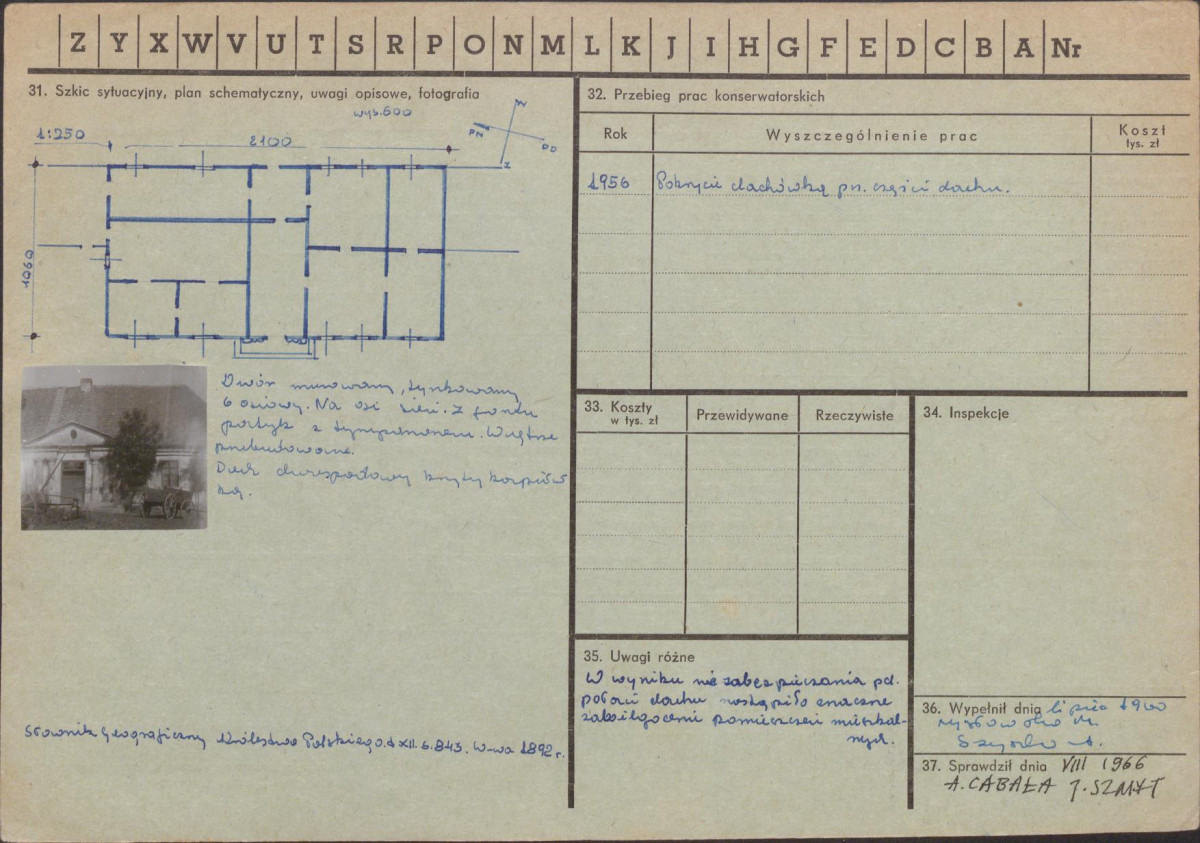 Z Y X W V U T S R P O N M L K J I H G F E D C B A Nr
31. Szkic sytuacyjny, plan schematyczny, uwagi opisowe, fotografia
wys. 600
1:250
2100
PN
PD
W
Z
1060
Dwór murowany, tynkowany
6 osiowy. Na osi sień. Z frontu
portyk z tympanonem. Wnętrze
przebudowane.
Dach dwuspadowy kryty karpiów
ką.
Słownik Geograficzny Królestwa Polskiego. t XII. s. 843. W-wa 1892 r.
32. Przebieg prac konserwatorskich
Rok
Wyszczególnienie prac
Koszt
tys. zł
1956
Pokrycie dachówką pn. części dachu.
33. Koszty
w tys. zł
Przewidywane
Rzeczywiste
34. Inspekcje
35. Uwagi różne
W wyniku nie zabezpieczania pd.
połaci dachu nastąpiło znaczne
zawilgocenie pomieszczeń mieszkal-
nych.
36. Wypełnił dnia lipiec
37. Sprawdził dnia VIII 1966
A. CABAŁA J. SZMYT